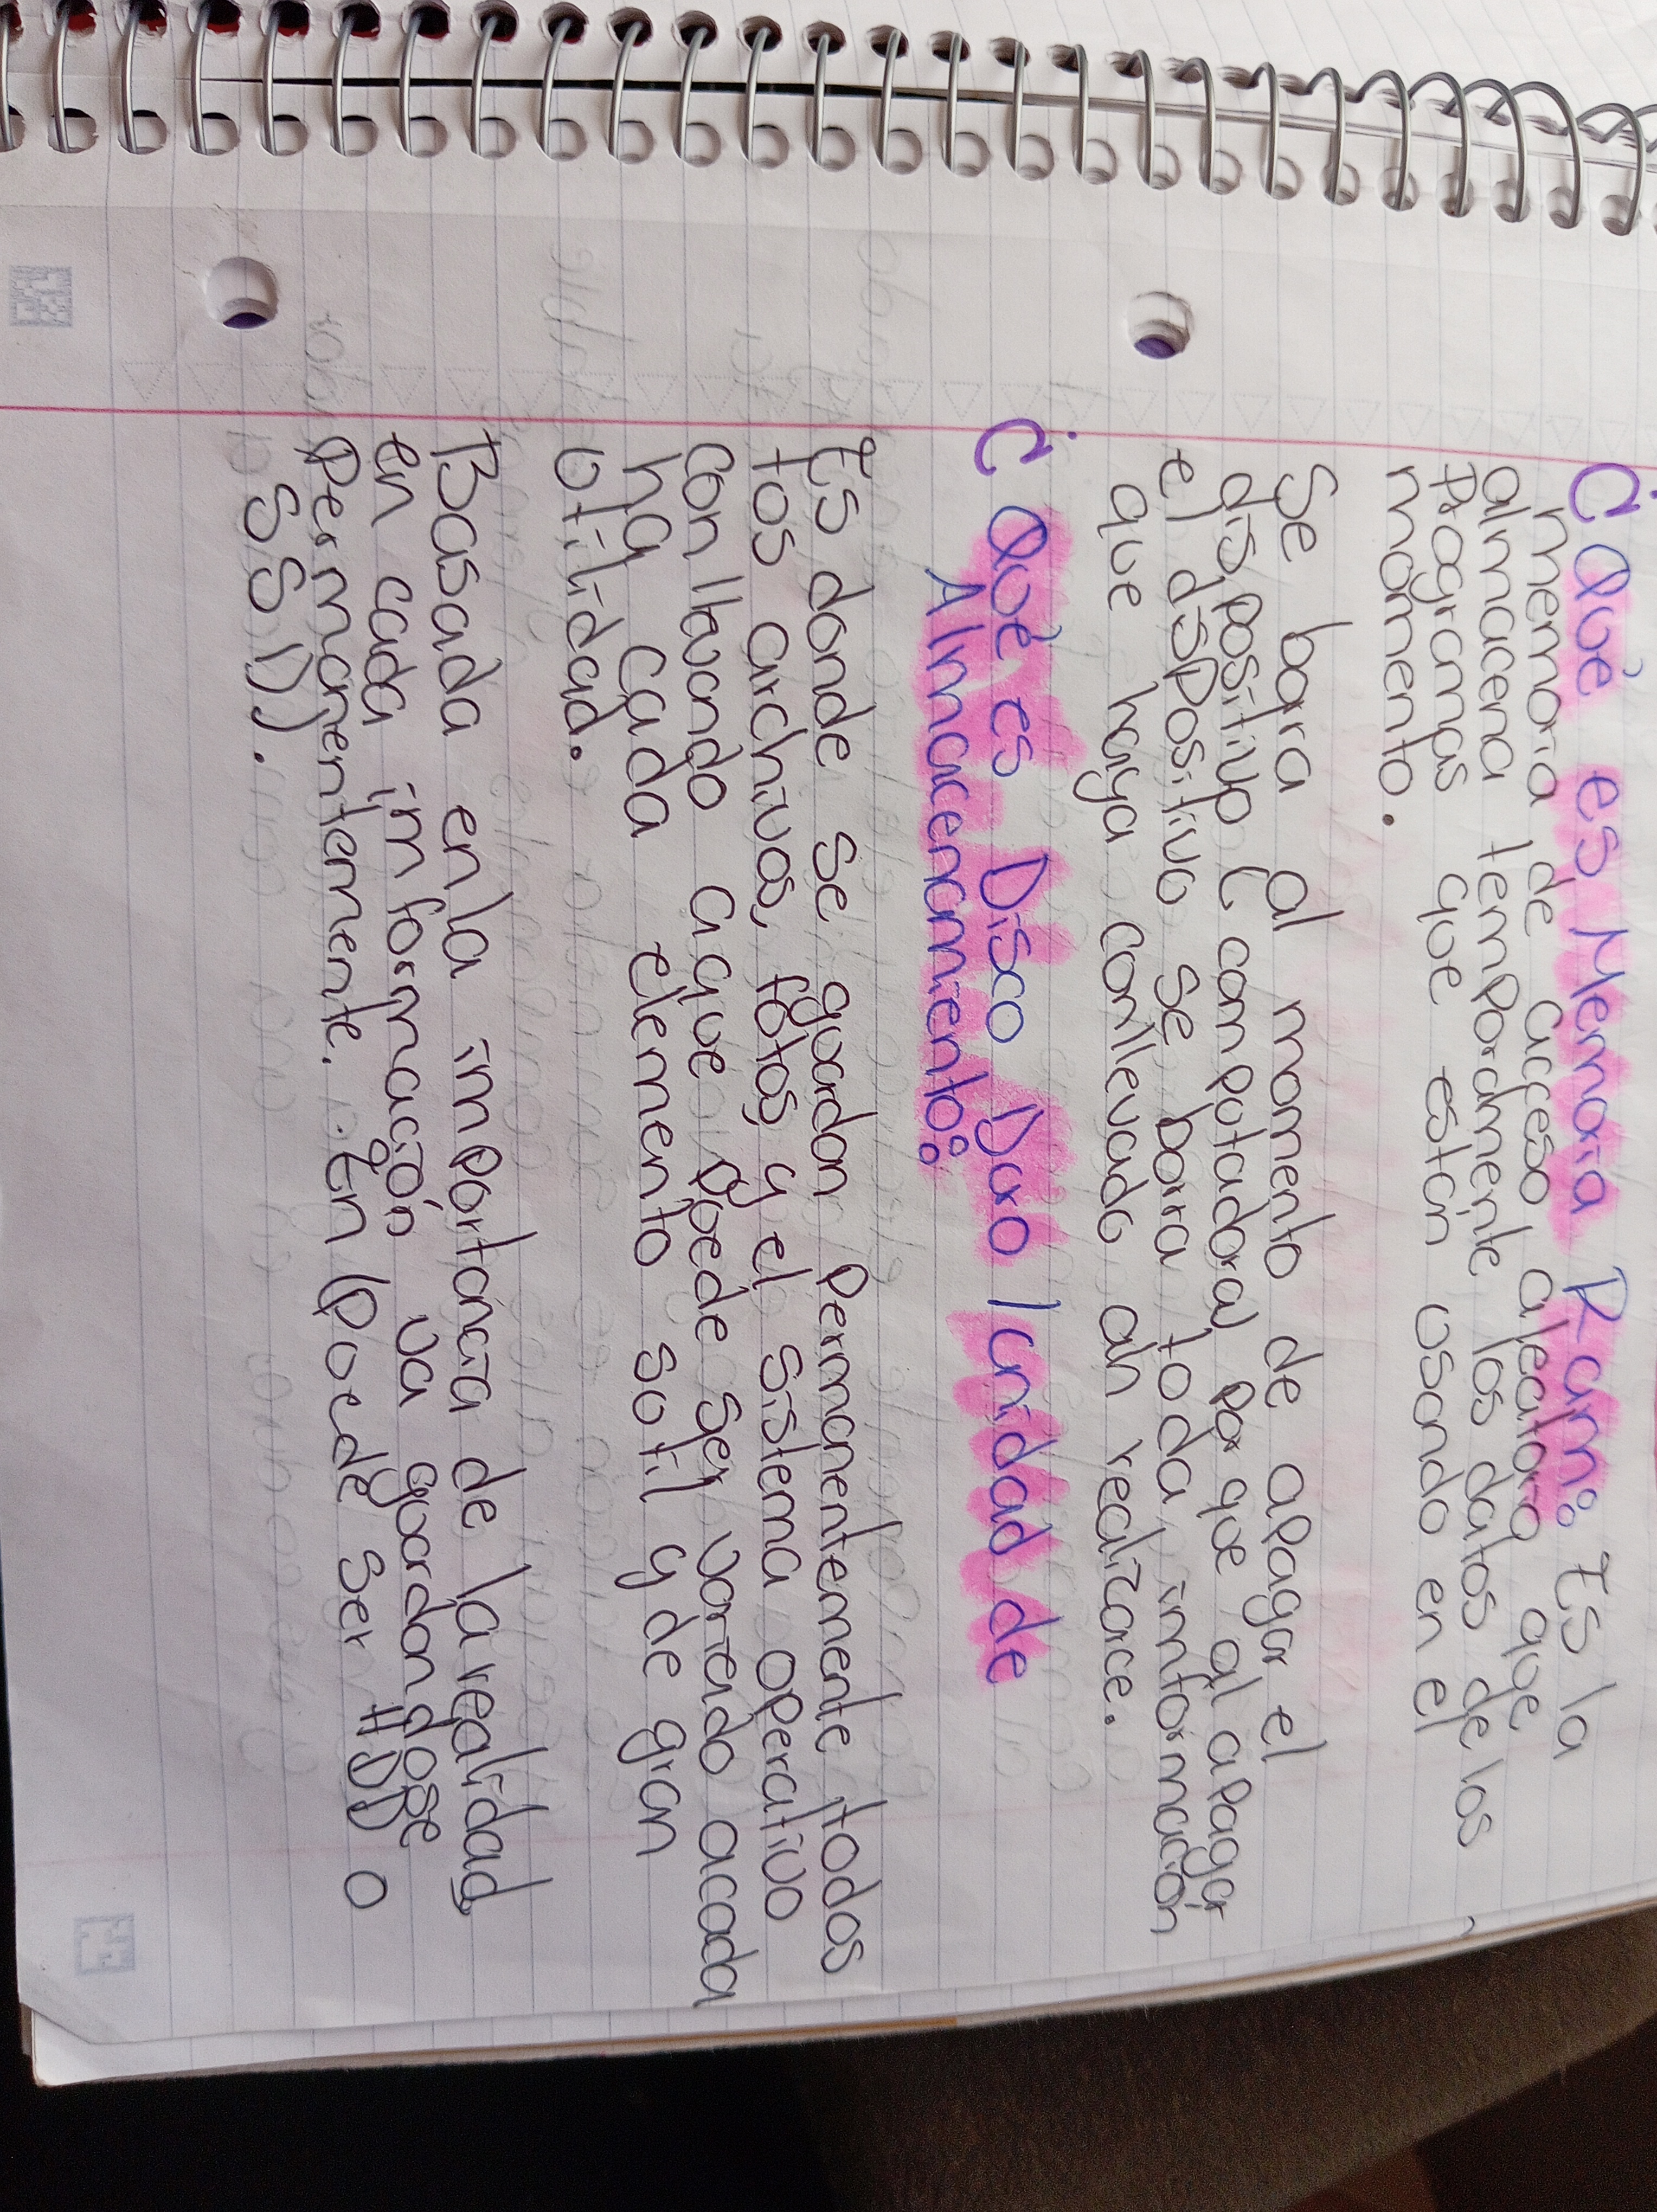 ¿ Què es Memoria Ram: Es la
memoria de acceso aleatoro que
almacena temporalmente los datos de los
programas que estan usando en el
momento.
Se borra al momento de apagar el
dispositivo (computadora) por que al apagar
el dispositivo se borra toda informaciòn
que haya conllevado ah realizarce.
¿ Què es Disco Duro / unidad de
Almacenamiento:
Es donde se guardan permanentemente todos
tos archivos, fotos y el sistema operativo
conllevando aque puede ser variado acada
ha cada elemento sotil y de gran
utilidad.
Basada en la importancia de la realidad
en cada imformaciòn va guardandose
permanentemente. En (puede ser HDD o
SSD).